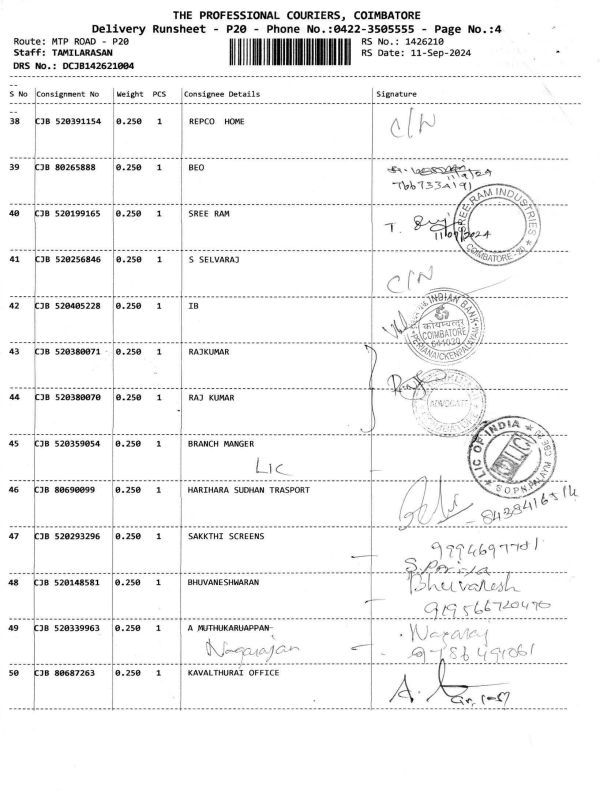 THE PROFESSIONAL COURIERS, COIMBATORE
Delivery Runsheet - P20 - Phone No.:0422-3505555 - Page No.:4
Route: MTP ROAD - P20 RS No.: 1426210
Staff: TAMILARASAN RS Date: 11-Sep-2024
DRS No.: DCJB142621004
S No Consignment No Weight PCS Consignee Details Signature
38 CJB 520391154 0.250 1 REPCO HOME C/N
39 CJB 80265888 0.250 1 BEO 11/9/24
40 CJB 520199165 0.250 1 SREE RAM T.
11/09/2024
SREE RAM INDUSTRIES
COIMBATORE - 20
41 CJB 520256846 0.250 1 S SELVARAJ C/N
42 CJB 520405228 0.250 1 IB
INDIAN BANK
कोयम्बत्तूर
COIMBATORE
641020
PERIANAICKENPALAYAM
43 CJB 520380071 0.250 1 RAJKUMAR
44 CJB 520380070 0.250 1 RAJ KUMAR
ADVOCATE
45 CJB 520359054 0.250 1 BRANCH MANGER
LIC
LIC OF INDIA
LIC
46 CJB 80690099 0.250 1 HARIHARA SUDHAN TRASPORT
47 CJB 520293296 0.250 1 SAKKTHI SCREENS
S. Poriya
48 CJB 520148581 0.250 1 BHUVANESHWARAN Bhuvanesh
919566720470
49 CJB 520339963 0.250 1 A MUTHUKARUAPPAN Nagaraj
Nagarajan 9786491061
50 CJB 80687263 0.250 1 KAVALTHURAI OFFICE